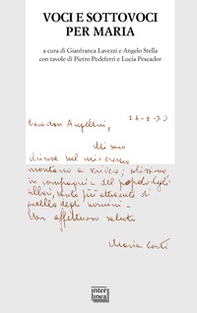 VOCI E SOTTOVOCI
PER MARIA
a cura di Gianfranca Lavezzi e Angelo Stella
con tavole di Pietro Pedeferri e Lucia Pescador
Caro don Angelini,
Mi sono
chiusa nel mio eremo
montano a scrivere; solissima
in compagnia del popolo degli
alberi, molto più attraente di
quello degli uomini.
Un affettuoso saluto
Maria Corti
inter
linea